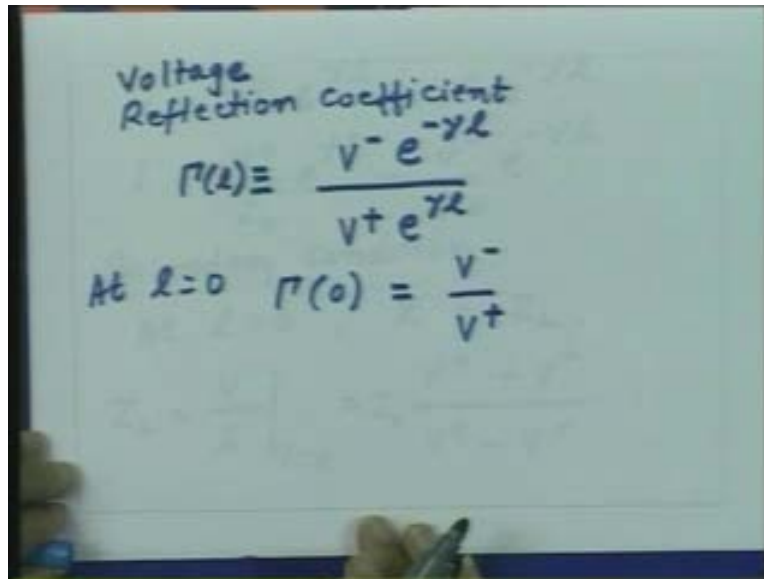 Voltage
Reflection coefficient
Γ(l) ≡ V⁻ e^{-γl} / V⁺ e^{γl}
At l=0 Γ(0) = V⁻ / V⁺